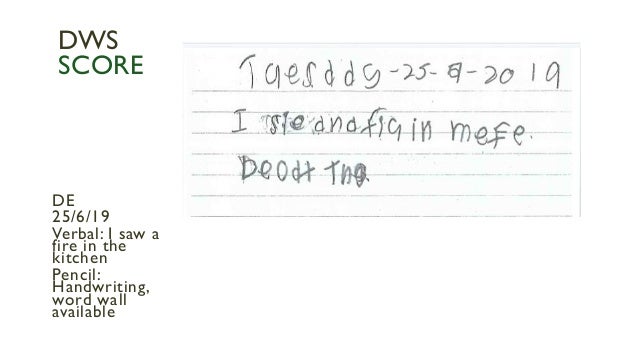 DWS
SCORE
Tuesddy-25-8-2019
I sie and a fig in mefe.
Deodt The
DE
25/6/19
Verbal: I saw a
fire in the
kitchen
Pencil:
Handwriting,
word wall
available